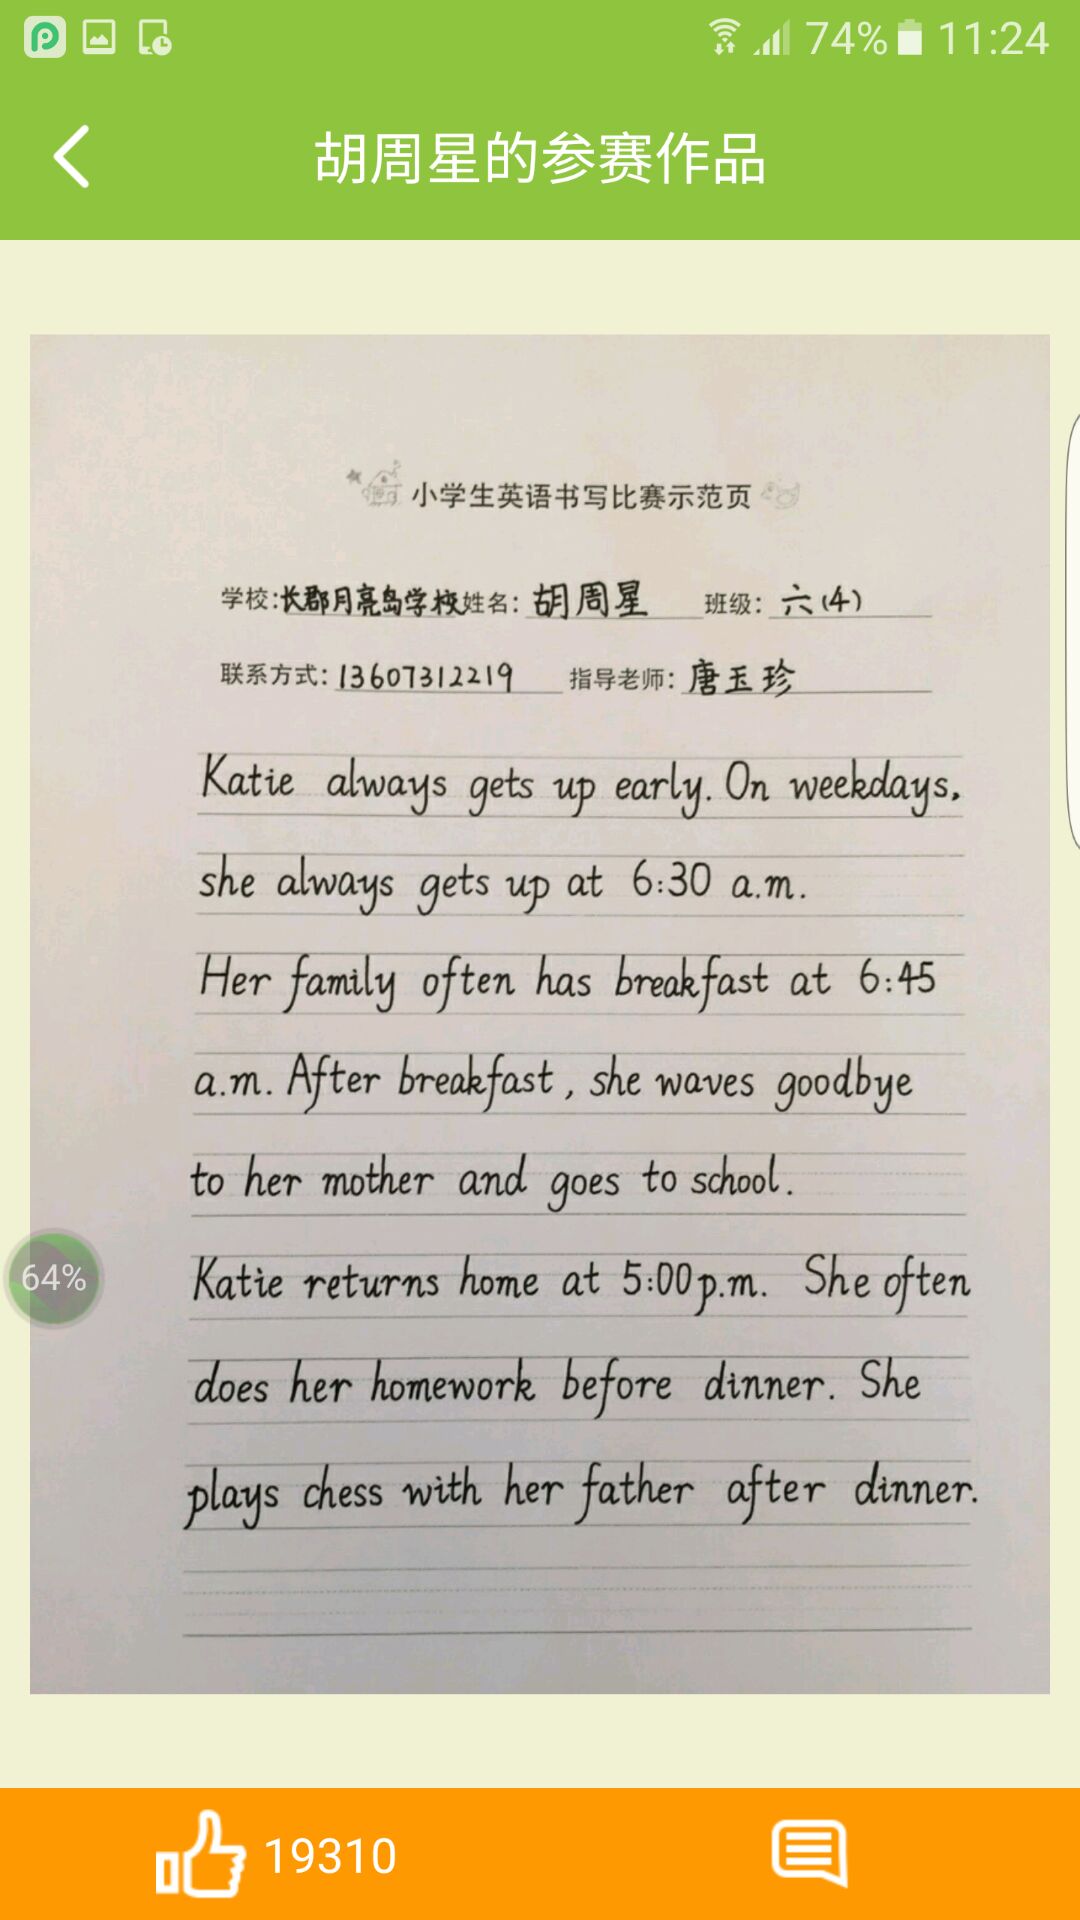 74% 11:24
胡周星的参赛作品
小学生英语书写比赛示范页
学校:长郡月亮岛学校 姓名: 胡周星 班级: 六(4)
联系方式: 13607312219 指导老师: 唐玉珍
Katie always gets up early. On weekdays.
she always gets up at 6:30 a.m.
Her family often has breakfast at 6:45
a.m. After breakfast, she waves goodbye
to her mother and goes to school.
64%
Katie returns home at 5:00p.m. She often
does her homework before dinner. She
plays chess with her father after dinner.
19310